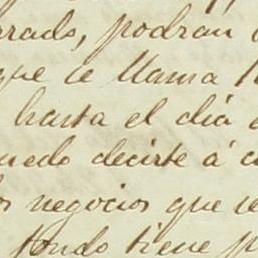 rado, podran
que se llama
hasta el dia
uedo decirte á
os negocios que se
fondo tiene p